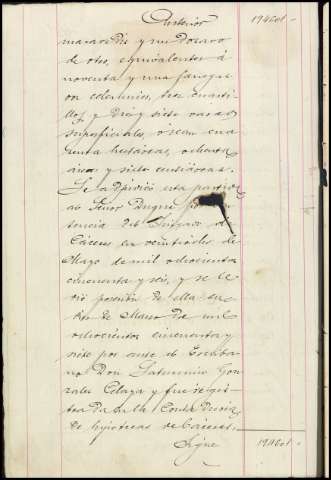 Anterior 
maravedis y un dozavo
de otro, equivalentes á
noventa y una fanegas
on celemines, tres cuarti
llos y diez y siete varas
superficiales, ó sean cua
renta hectáreas, ochenta
áreas y siete centiáreas.
Se adjudicó esta partida
al Señor Duque por
tencia del Juzgado de
Cáceres en veintitres de
Mayo de mil ochocientos
cincuenta y seis, y se le
dió posesión de ella en
de Marzo de mil
ochocientos cincuenta y
siete por ante el Escriba
no Don Saturnino Gon
zalez Celaya y fue regis
trada en la Contaduría
de hipotecas de Cáceres.
Sigue